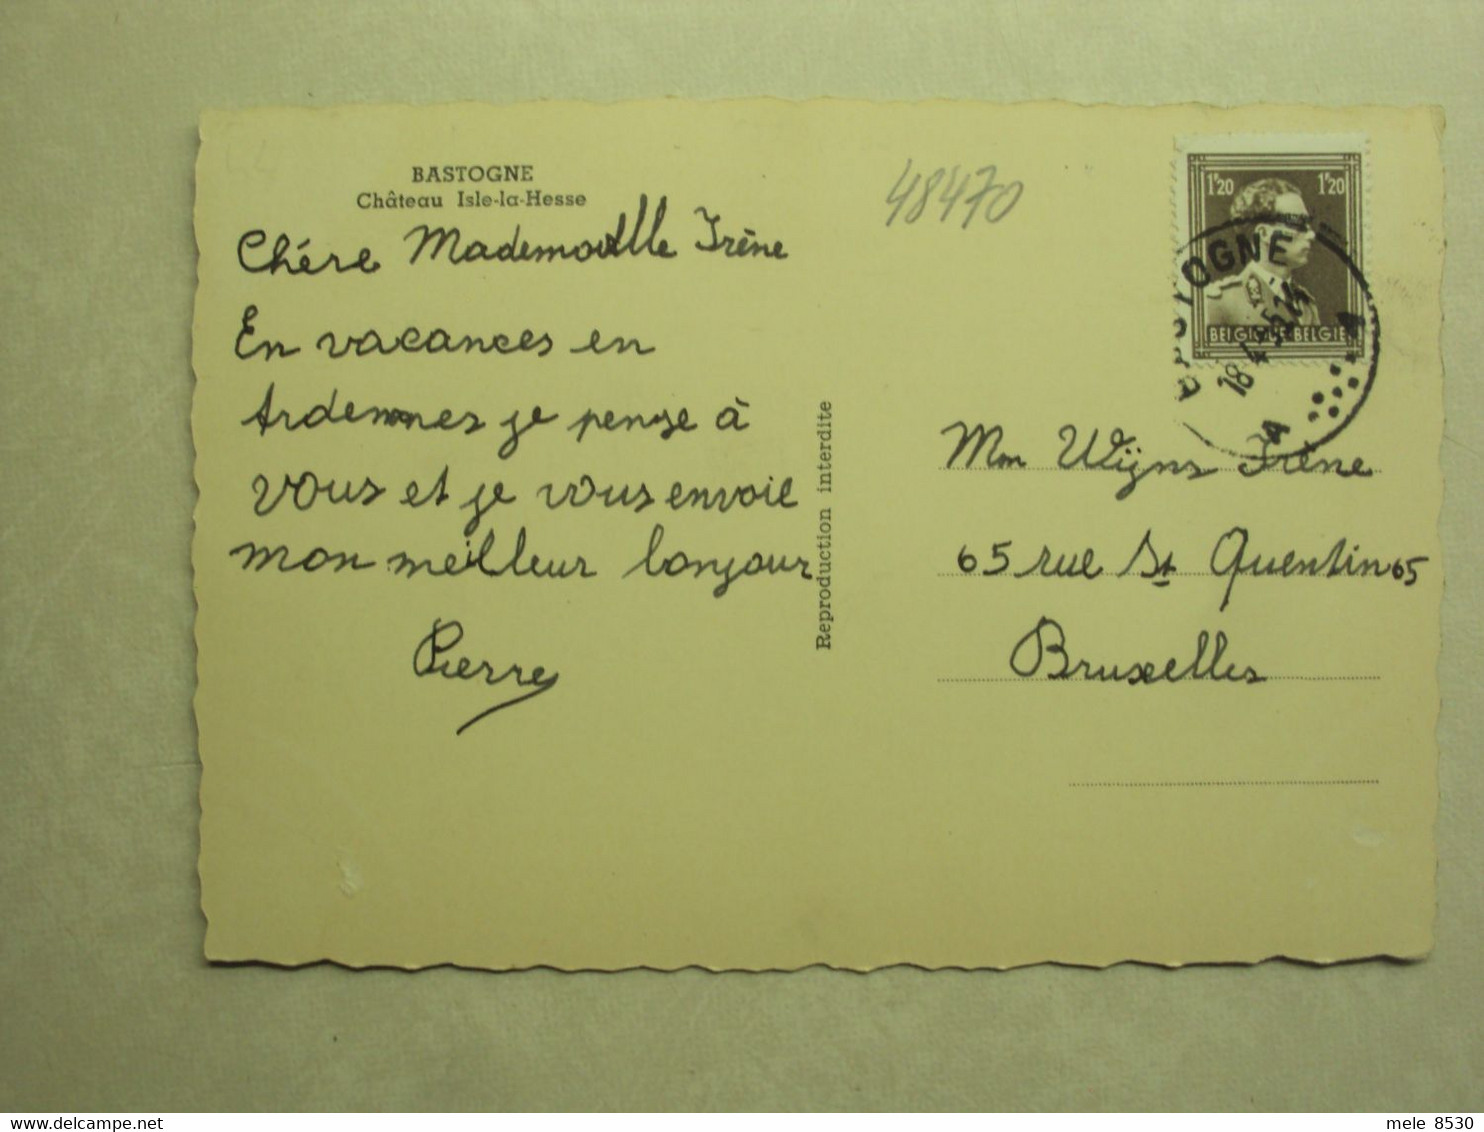 BASTOGNE
Château Isle-la-Hesse
Chére Mademoiselle Irène
En vacances en
Ardennes je pense à
vous et je vous envoie
mon meilleur bonjour
Pierre
Reproduction interdite
48470
1F20 1F20
BELGIQUE-BELGIE
BASTOGNE
A
Mm Wijns Irène
65 rue St Quentin 65
Bruxelles
mele 8530